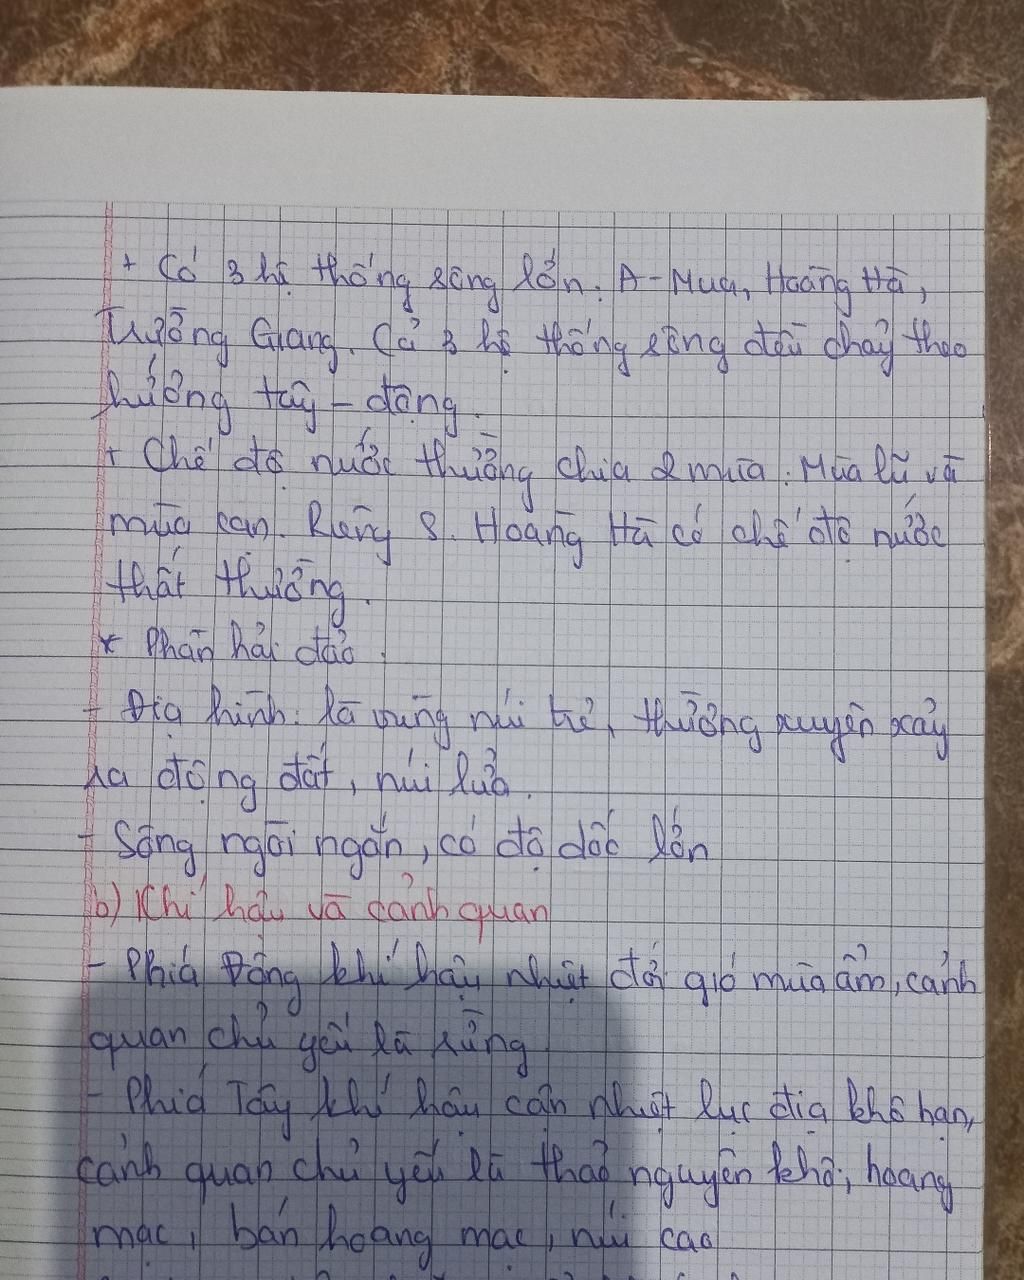 + Có 3 hệ thống sông lớn: A-Mua, Hoàng Hà,
Trường Giang. Cả 3 hệ thống sông đều chảy theo
hướng tây – đông.
+ Chế độ nước thường chia 2 mùa: Mùa lũ và
mùa cạn. Riêng S. Hoàng Hà có chế độ nước
thất thường.
* Phần hải đảo:
- Địa hình: là vùng núi trẻ, thường xuyên xảy
ra động đất, núi lửa.
- Sông ngòi ngắn, có độ dốc lớn
b) Khí hậu và cảnh quan
- Phía Đông khí hậu nhiệt đới gió mùa ẩm, cảnh
quan chủ yếu là rừng
- Phía Tây khí hậu cận nhiệt lục địa khô hạn,
cảnh quan chủ yếu là thảo nguyên khô, hoang
mạc, bán hoang mạc, núi cao